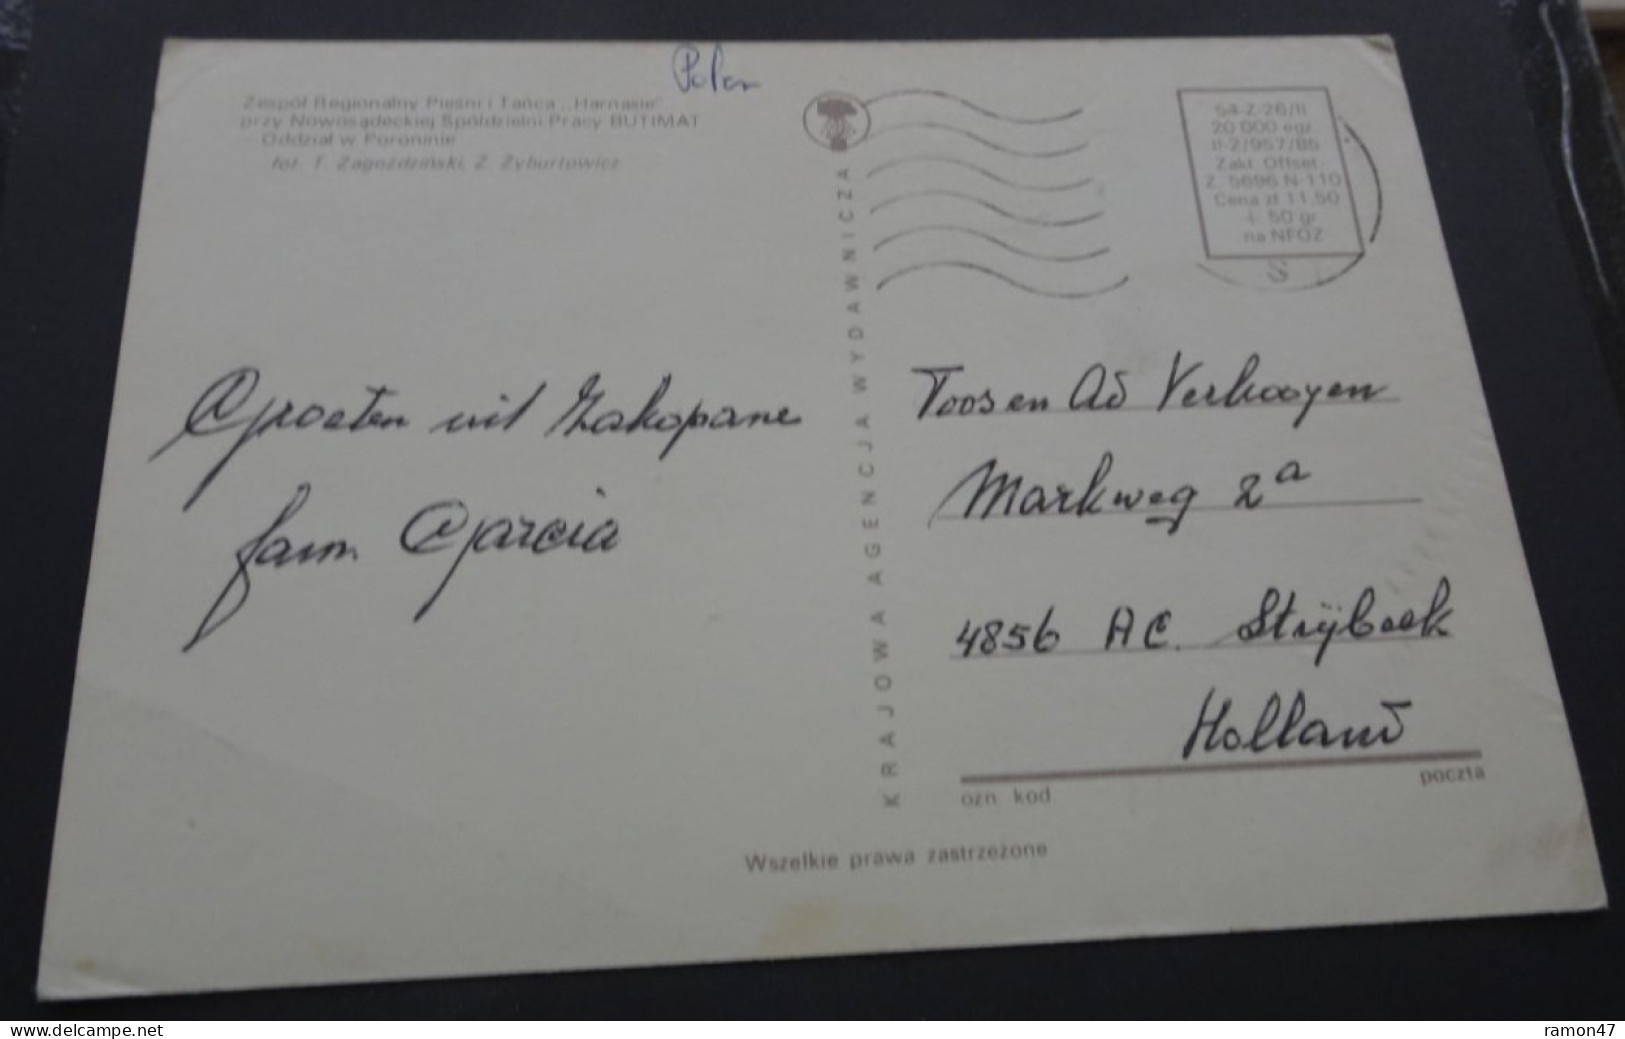 Polen
Zespół Regionalny Pieśni i Tańca „Harnasie"
przy Nowosądeckiej Spółdzielni Pracy BUTIMAT
Oddział w Poroninie
fot. T. Zagoździński, Z. Żyburtowicz
54-Z-26/II
20 000 egz.
II-2/957/85
Zakł. Offset.
Z. 5696 N-110
Cena zł 11,50
+ 50 gr
na NFOZ
S
KRAJOWA AGENCJA WYDAWNICZA
Groeten uit Zakopane
fam. Garcia
Toos en Ad Verhooyen
Markweg 2a
4856 AC. Strijbeek
Holland
ozn. kod.
poczta
Wszelkie prawa zastrzeżone
www.delcampe.net
ramon47